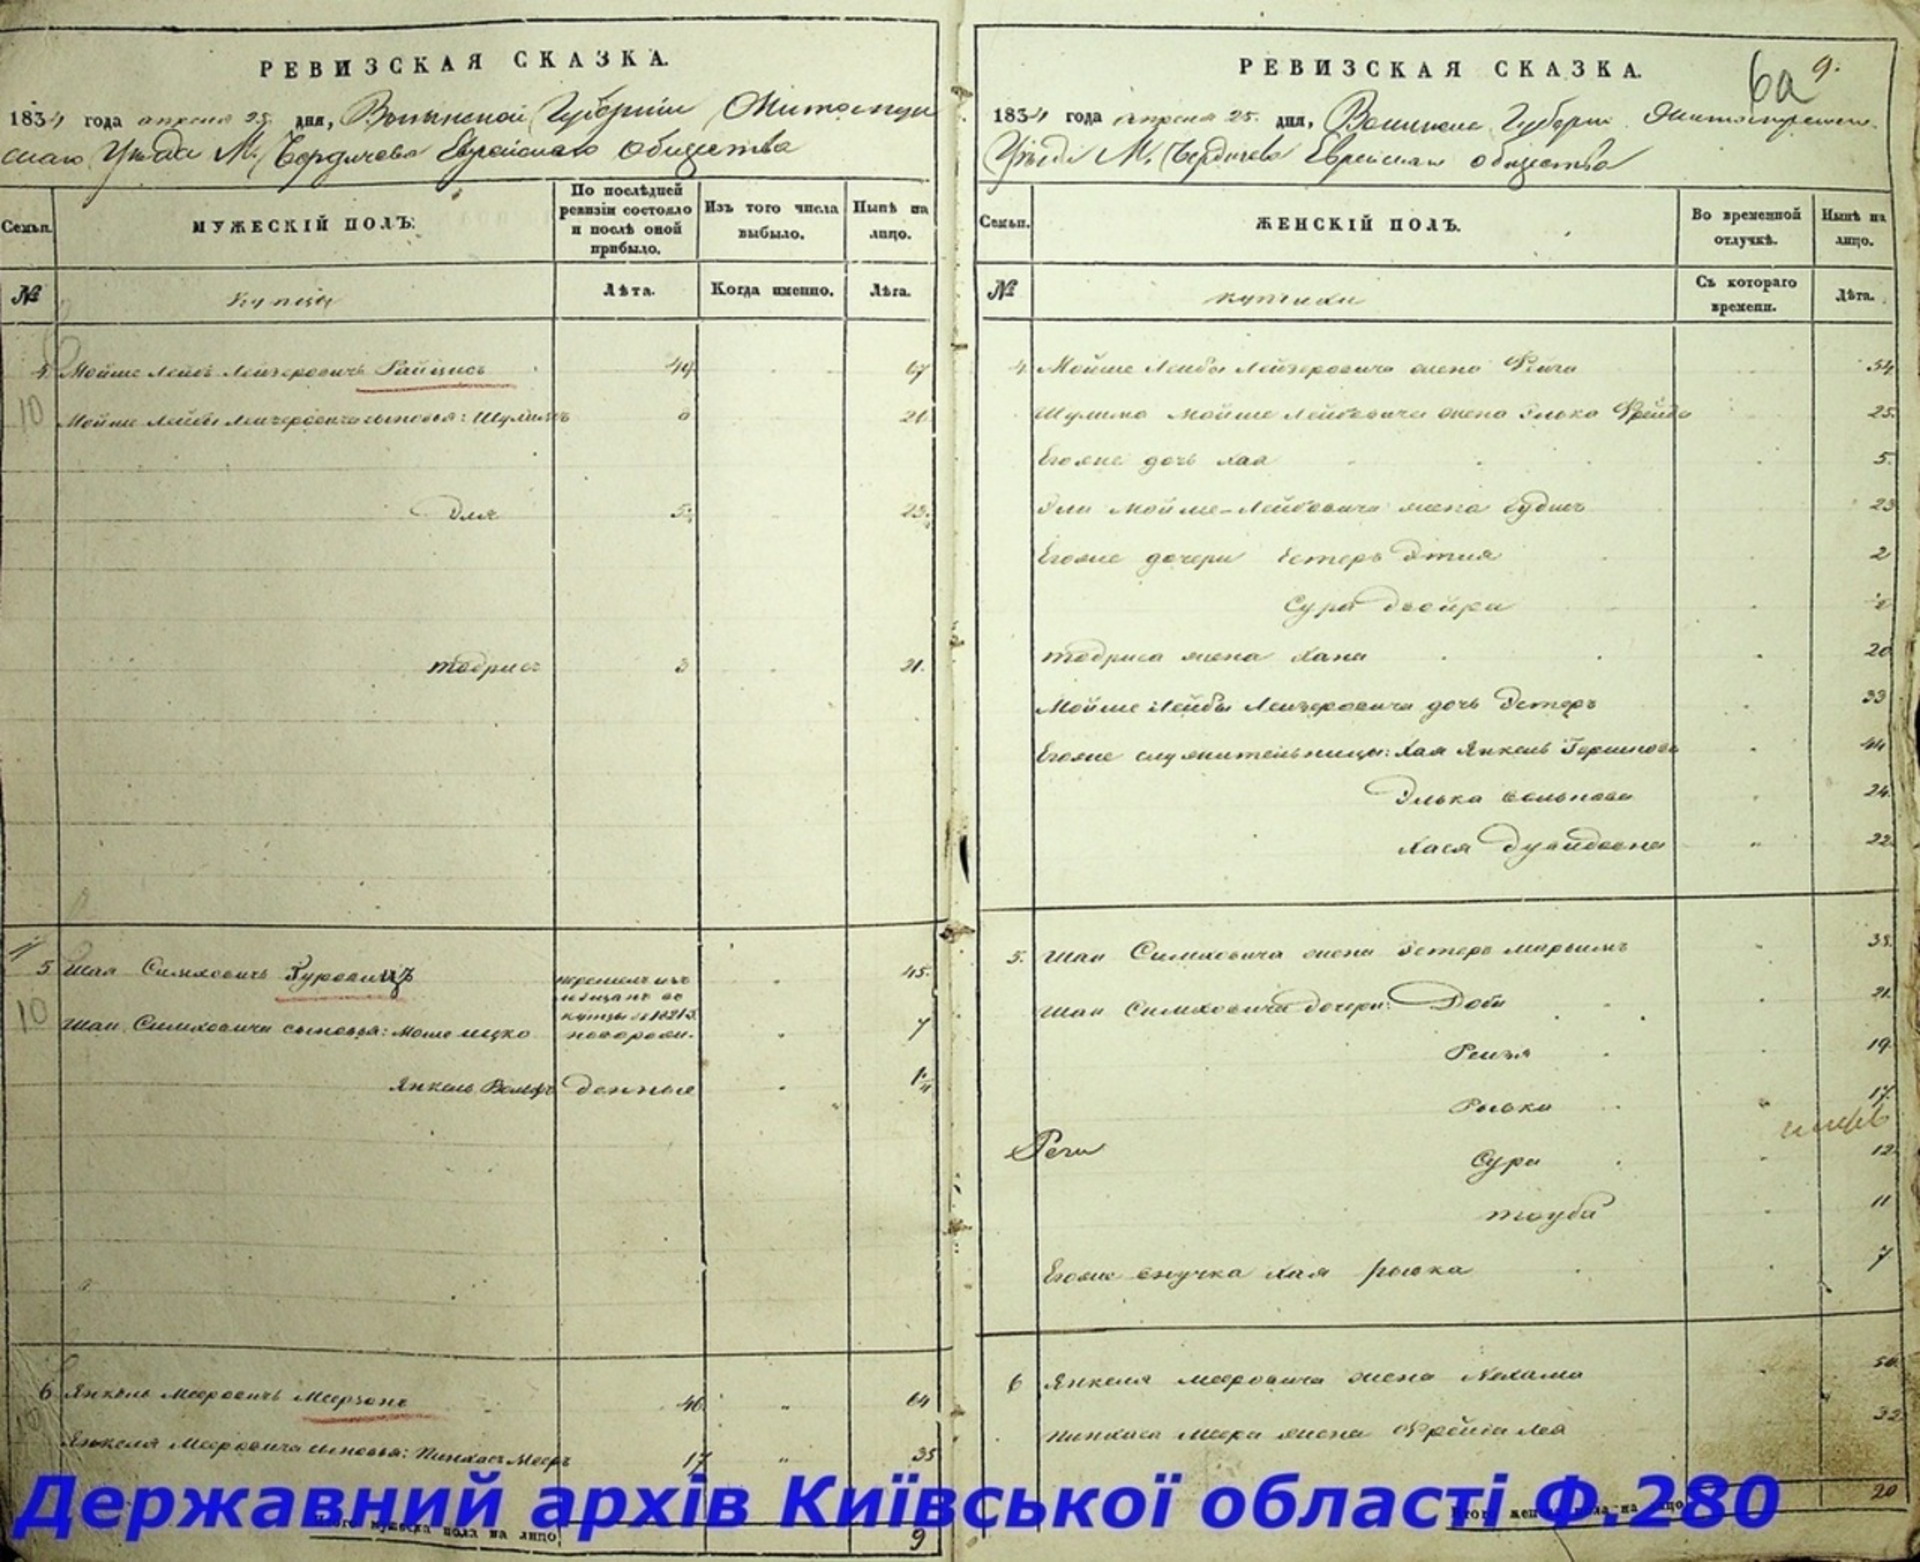 РЕВИЗСКАЯ СКАЗКА.
1834 года апреля 25 дня, Волынской Губернии Житомирска
скаго Уезда М. Бердичева Еврейскаго общества
Семьи.
МУЖЕСКІЙ ПОЛЪ.
По послѣдней ревизіи состояло и послѣ оной прибыло.
Изъ того числа выбыло.
Нынѣ на лицо.
№
купцы
Лѣта.
Когда именно.
Лѣта.
4 Мойше Лейба Лейзеровичъ Райцисъ 49 67
10
Мойше Лейбы Лейзеровича сыновья: Шулимъ 21
Эля 5 23
Тодрисъ 3 21.
5 Шая Симховичъ Гуровицъ 45.
10
Шаи Симховича сыновья: Моше Ицко новорож- 7
Янкель Вольфъ денные
6 Янкель Мееровичъ Меерзонъ 46 64
Янкеля Мееровича сыновья: Пинхасъ Мееръ 17 35
Итого мужеска пола на лицо 9
РЕВИЗСКАЯ СКАЗКА.
6а 9.
1834 года апреля 25. дня, Волынской Губернии
Уезда М. Бердичева Еврейскаго общества
Семьи.
ЖЕНСКІЙ ПОЛЪ.
Во временной отлучкѣ.
Нынѣ на лицо.
№
купчихи
Съ котораго времени.
Лѣта.
4 Мойше Лейбы Лейзеровича жена Фейга 54
Шулима Мойше Лейбовича жена Элька Фрейда 25.
Егоже дочь Хая 5.
Эли Мойше-Лейбовича жена 23
Егоже дочери Естеръ 2
Сура Двойра
Тодриса жена Хана 20
Мойше Лейбы Лейзеровича дочь Эстеръ 33
Егоже служительницы: Хая Янкель Гершкова 44
Элька 24.
Хася Дувидовна 22
5. Шаи Симховича жена Естеръ Марьимъ 38.
Шаи Симховича дочери: Доба 21.
Рейзя 19.
Рывка 17.
Сура 12
Тауба 11
Егоже внучка Хая Рывка 7
6 Янкеля Мееровича жена Нехама 50.
Пинхаса Меера жена Фрейга Лея 32
Итого женска пола на лицо 20
Державний архів Київської області Ф.280